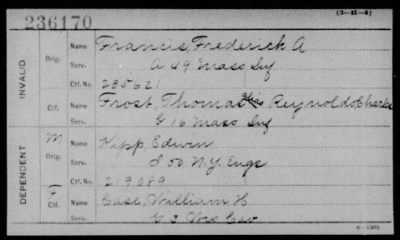 (3-11-4)
236170
INVALID
Orig.
Name Francis, Frederick A
Serv. A 49 Mass Inf
Ctf. No. 235621
Ctf.
Name Frost, Thomas alias Reynolds, Charles
Serv. G 16 Mass Inf
DEPENDENT
M
Orig.
Name Kipp, Edwin
Serv. I 50 N.Y. Engs
Ctf. No. 219089
F
Ctf.
Name Case, William H
Serv. G 3 Wis Cav